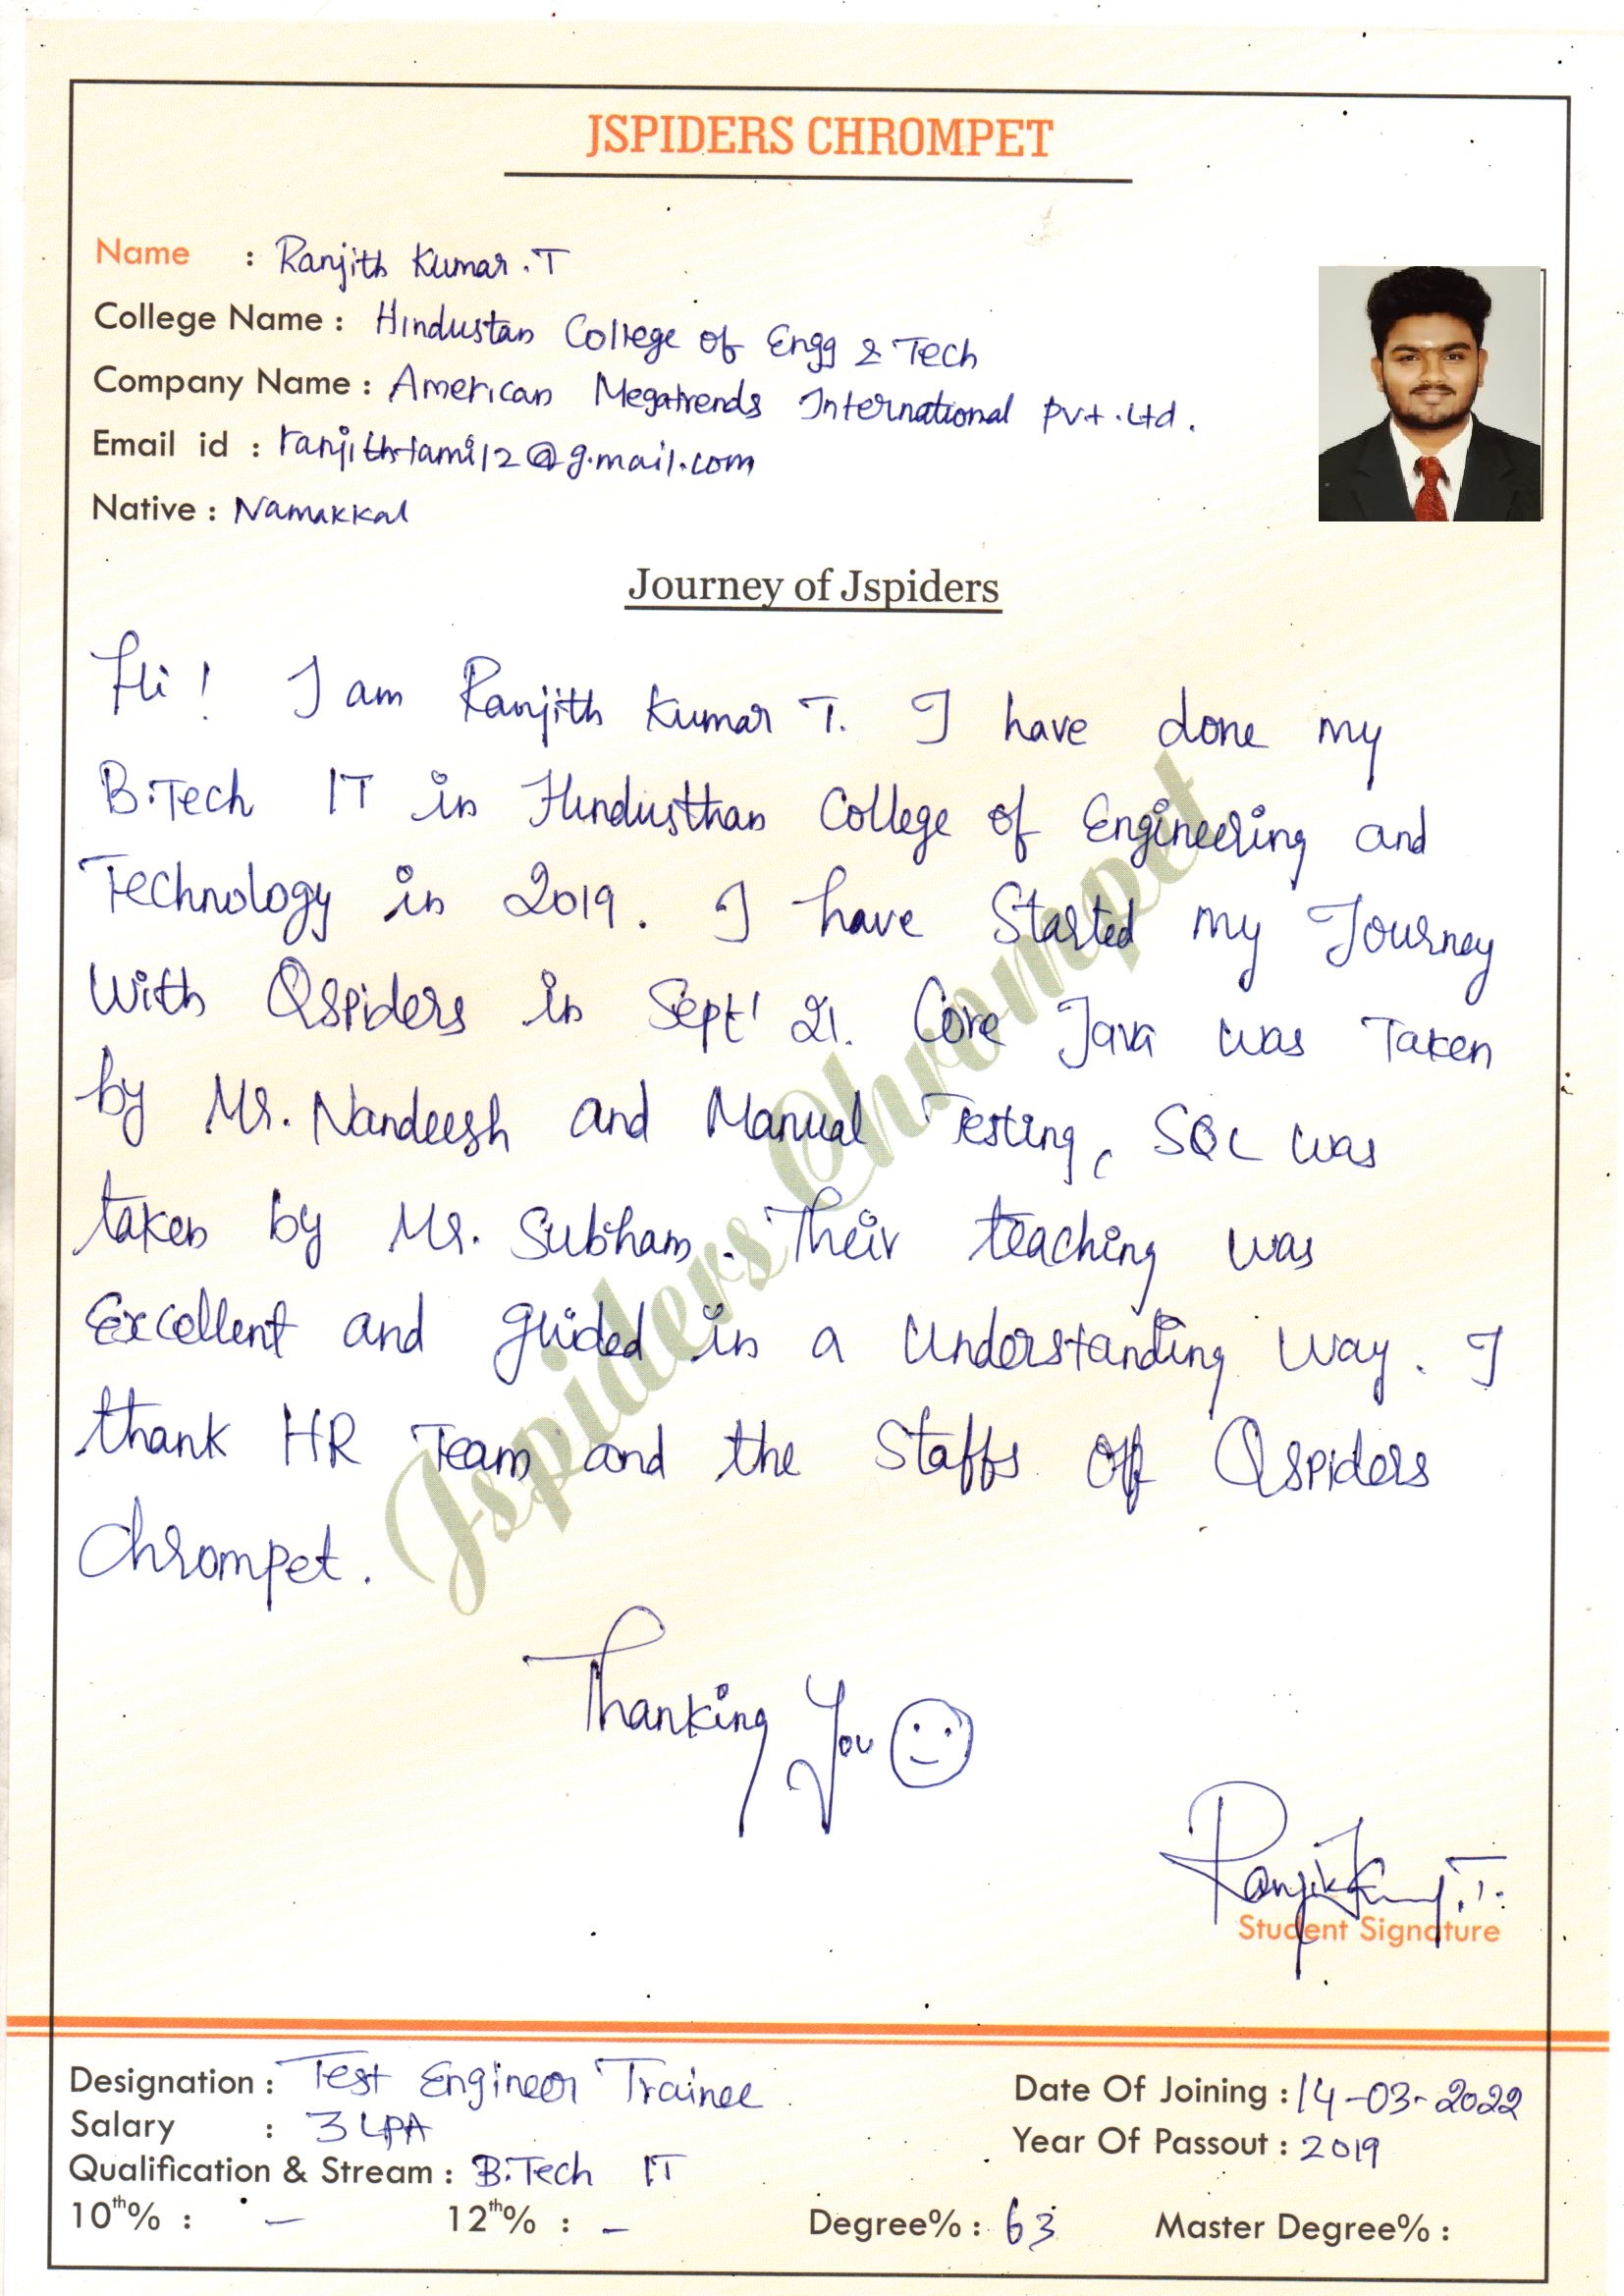 JSPIDERS CHROMPET
Name : Ranjith Kumar .T
College Name : Hindustan College of Engg & Tech
Company Name : American Megatrends International Pvt. Ltd.
Email id : ranjithtamil2@g.mail.com
Native : Namakkal
Journey of Jspiders
Hi! I am Ranjith Kumar T. I have done my
B.Tech IT in Hindusthan College of Engineering and
Technology in 2019. I have Started my Journey
With QSpiders in Sept' 21. Core Java was Taken
by Mr. Nandeesh and Manual Testing, SQL was
taken by Mr. Subham. Their teaching was
Excellent and guided in a Understanding way. I
thank HR Team and the Staffs of QSpiders
Chrompet.
Jspiders Chrompet
Thanking You
Student Signature
Designation : Test Engineer Trainee
Date Of Joining : 14-03-2022
Salary : 3 LPA
Year Of Passout : 2019
Qualification & Stream : B.Tech IT
10th% : - 12th% : - Degree% : 63 Master Degree% :